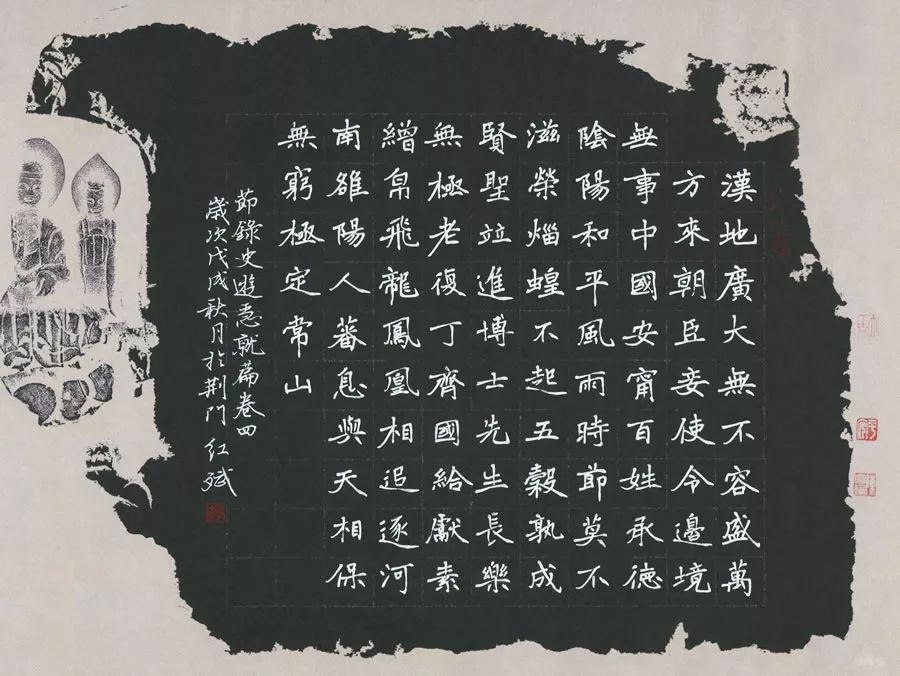 漢地廣大無不容盛萬
方來朝臣妾使令邊境
無事中國安甯百姓承德
陰陽和平風雨時節莫不
滋榮蝗不起五穀孰成
賢聖竝進博士先生長樂
無極老復丁齊國給獻素
繒帛飛龍鳳凰相追逐河
南雒陽人蕃息與天相保
無窮極定常山
節錄史遊急就篇卷四
歲次戊戌秋月於荆門 红斌